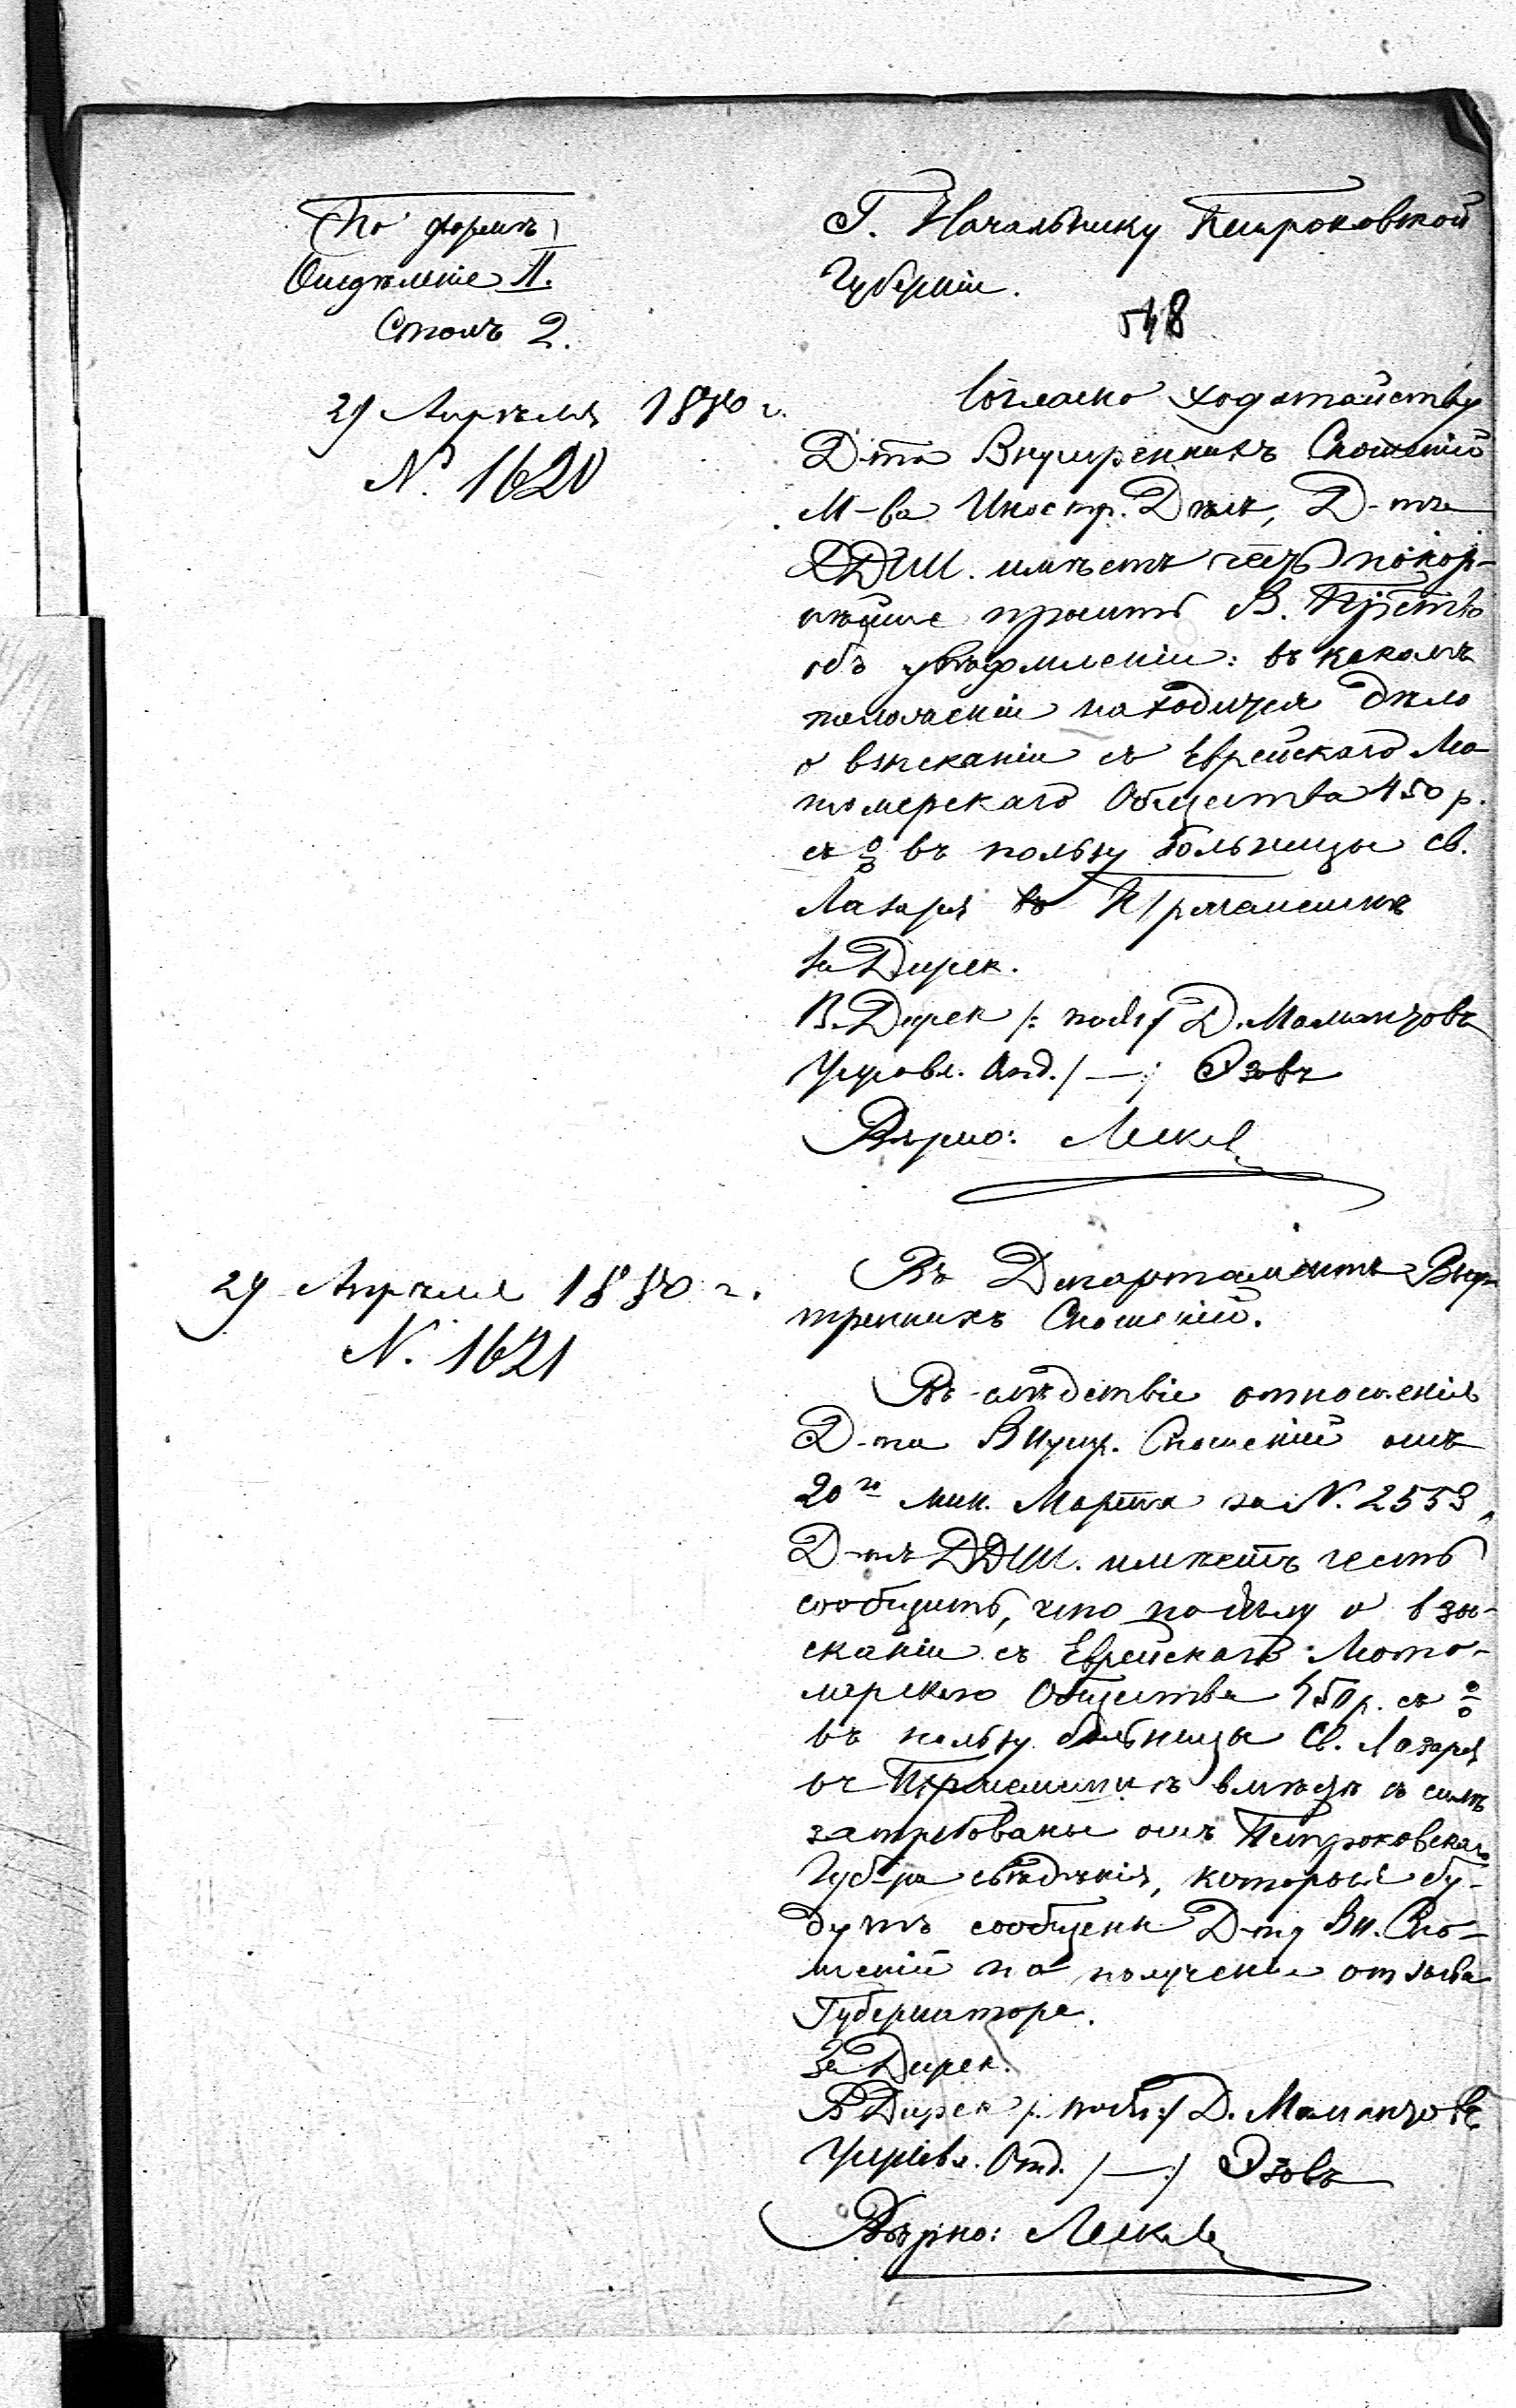 По формѣ
Отдѣленіе II.
Столъ 2.
29 Апрѣля 1880 г.
№ 1620
Г. Начальнику Петроковской
Губерніи.
548
Согласно ходатайству
Д-та Внутреннихъ Сношеній
М-ва Иностр. Дѣлъ, Д-тъ
ДДИИ. имѣетъ честь покор-
нѣйше просить В. Пр-ство
объ увѣдомленіи: въ какомъ
положеніи находится дѣло
о взысканіи съ Еврейскаго Лю-
томерскаго Общества 450 р.
съ % въ пользу больницы св.
Лазаря въ
За Дирек.
В. Дирек /: подп :/ Д. Мамантовъ
Управл. Отд. /—:/ Эзовъ
Вѣрно:
29 Апрѣля 1880 г.
№ 1621
Въ Департаментъ Вну-
треннихъ Сношеній.
Въ слѣдствіе отношенія
Д-та Внутр. Сношеній отъ
20го мин. Марта за № 2559,
Д-тъ ДДИИ. имѣетъ честь
сообщить, что по дѣлу о взы-
сканіи съ Еврейскаго Люто-
мерскаго Общества 450 р. съ %
въ пользу больницы Св. Лазаря
въ вмѣстѣ съ симъ
затребованы отъ Петроковскаго
Губ-ра свѣдѣнія, которыя бу-
дутъ сообщены Д-ту Вн. Сно-
шеній по полученіи отзыва
Губернатора.
За Дирек.
В Дирек /: подп :/ Д. Мамантовъ
Управл. Отд. /—:/ Эзовъ
Вѣрно: